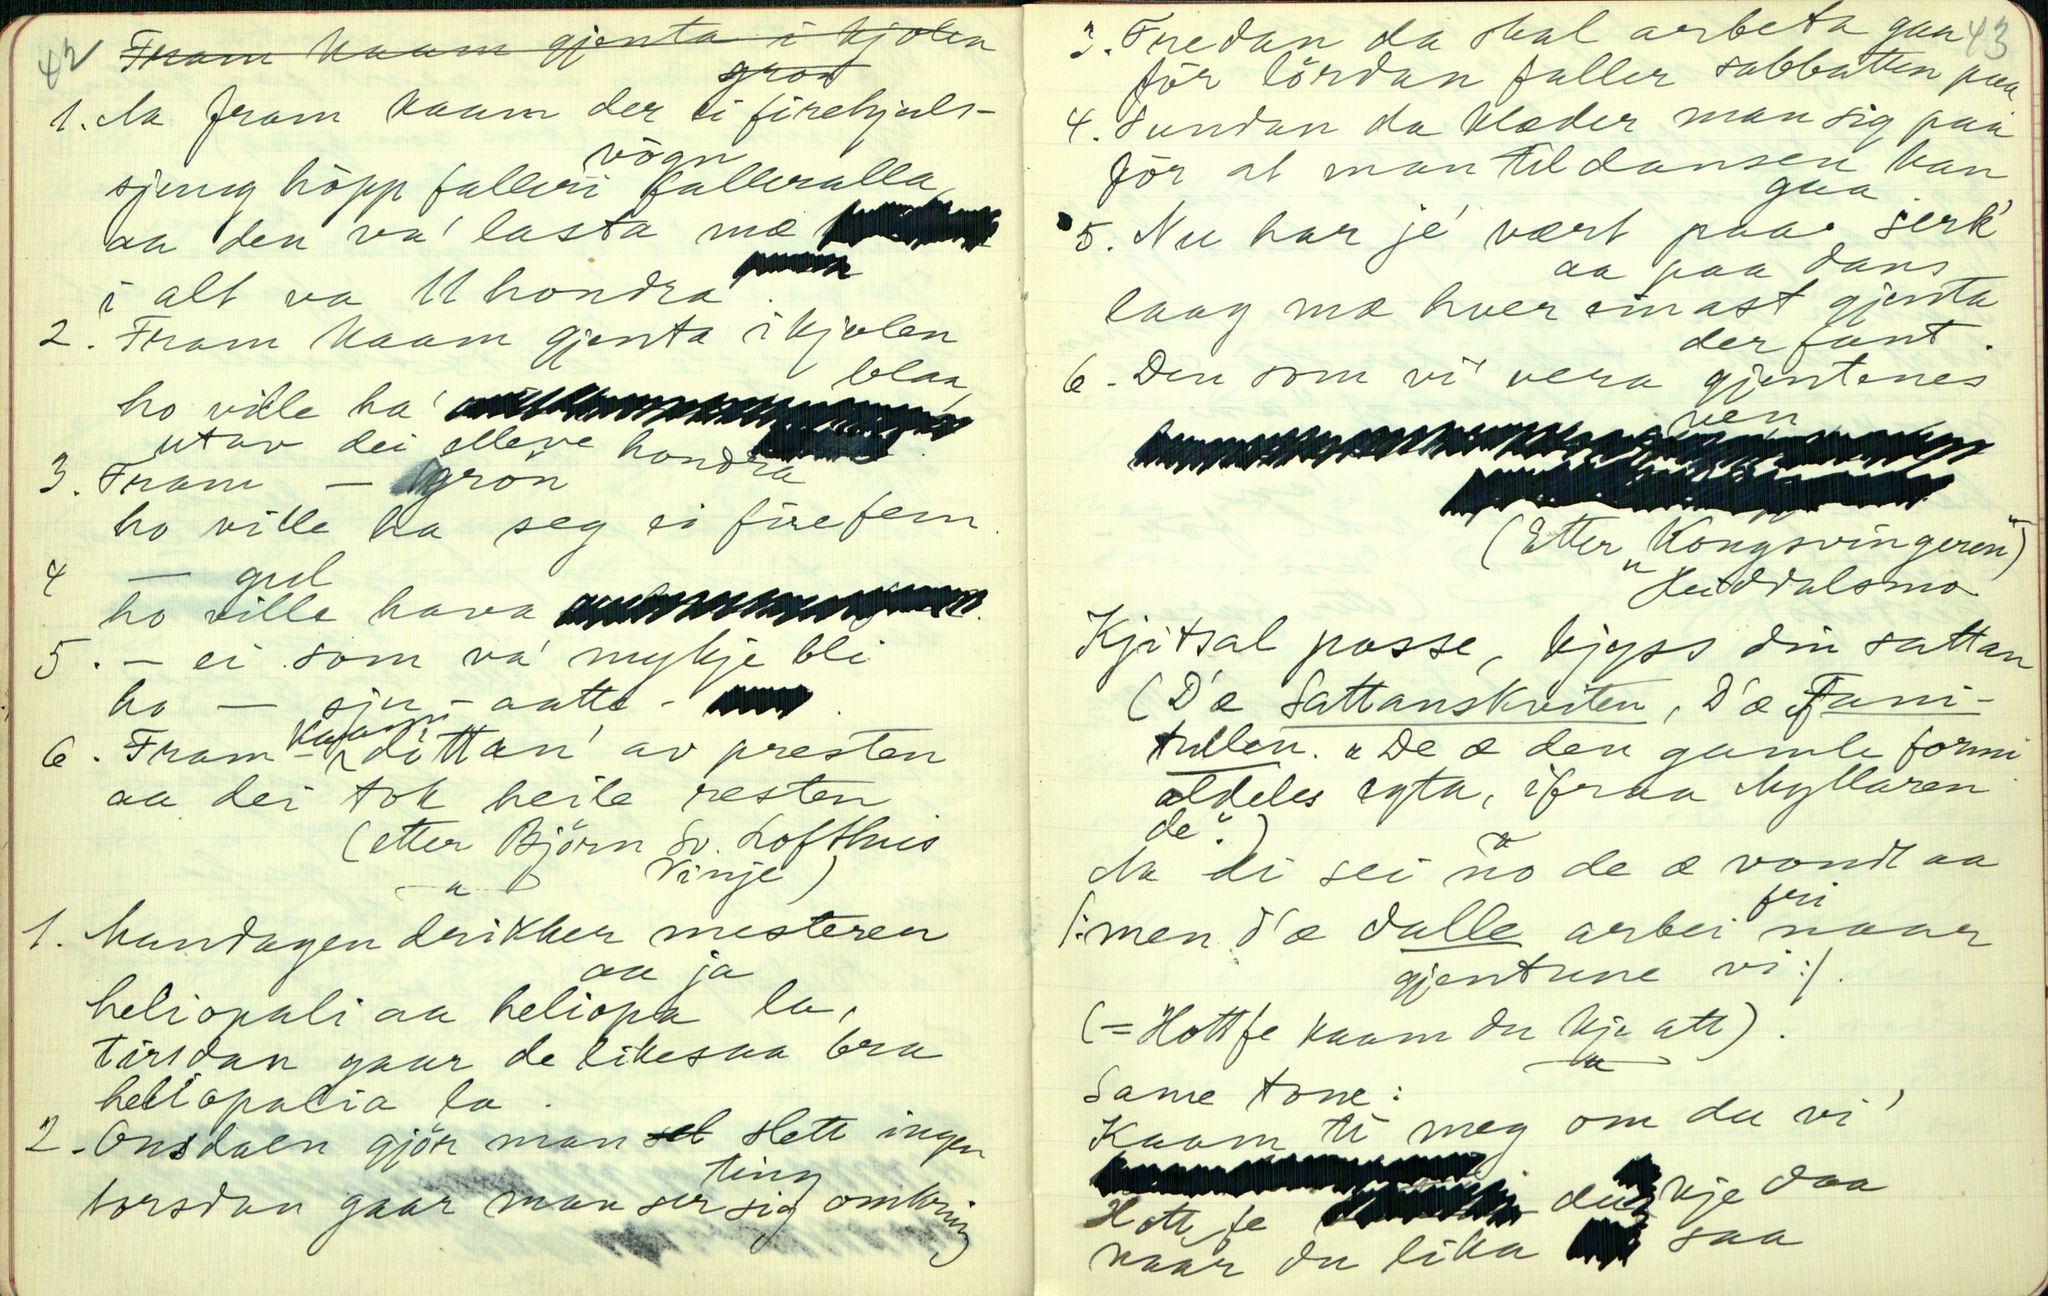 42
Fram kaam gjenta i kjolen
grøn
1. Aa fram kaam der ei firehjuls-
vögn
sjung höpp falleri falleralla,
aa den va' lasta mæ
i alt va 11 hondra
2. Fram kaam gjenta i kjolen
blaa,
ho ville ha'
utav dei elleve hondra
3. Fram — grön
ho ville ha seg ei fire fem
4 — gul
ho ville hava
5. — ei som va' mykje bli
ho — sju - aatte -
6. Fram - kaam döttan' av presten
aa dei tok heile resten
(etter Björn Sv. Lofthus
Vinje)
1. Mandagen drikker mesteren
aa ja
heliopali aa heliopa la,
tirsdan gaar de likesaa bra
heliopalia la.
2. Onsdaen gjör man slett ingen
ting
torsdan gaar man ser sig omkring
43
3. Fredan da skal arbeta gaa
för lördan faller sabbatten paa
4. Sundan da klæder man sig paa
för at man til dansen kan
gaa
5. Nu har je' vært paa serk'
aa paa dans
laag mæ hver einast gjenta
der fant.
6. Den som vi' vera gjentenes
ven
(Etter „Kongsvingeren")
Heiddalsmo
Kjitsal posse, kjyss din sattan
(D'æ Sattanskviten, D'æ Fani-
tullen. „De æ den gamle formi
aldeles egta, ifraa Myllaren
de".)
Aa di sei no de æ vondt aa
fri
/: men d'æ dalle arbei naar
gjentune vi :/.
(= Hottfe kaam du kje att).
Same tone:
Kaam ti meg om du vi'
Hottfe du kje daa
naar du lika saa